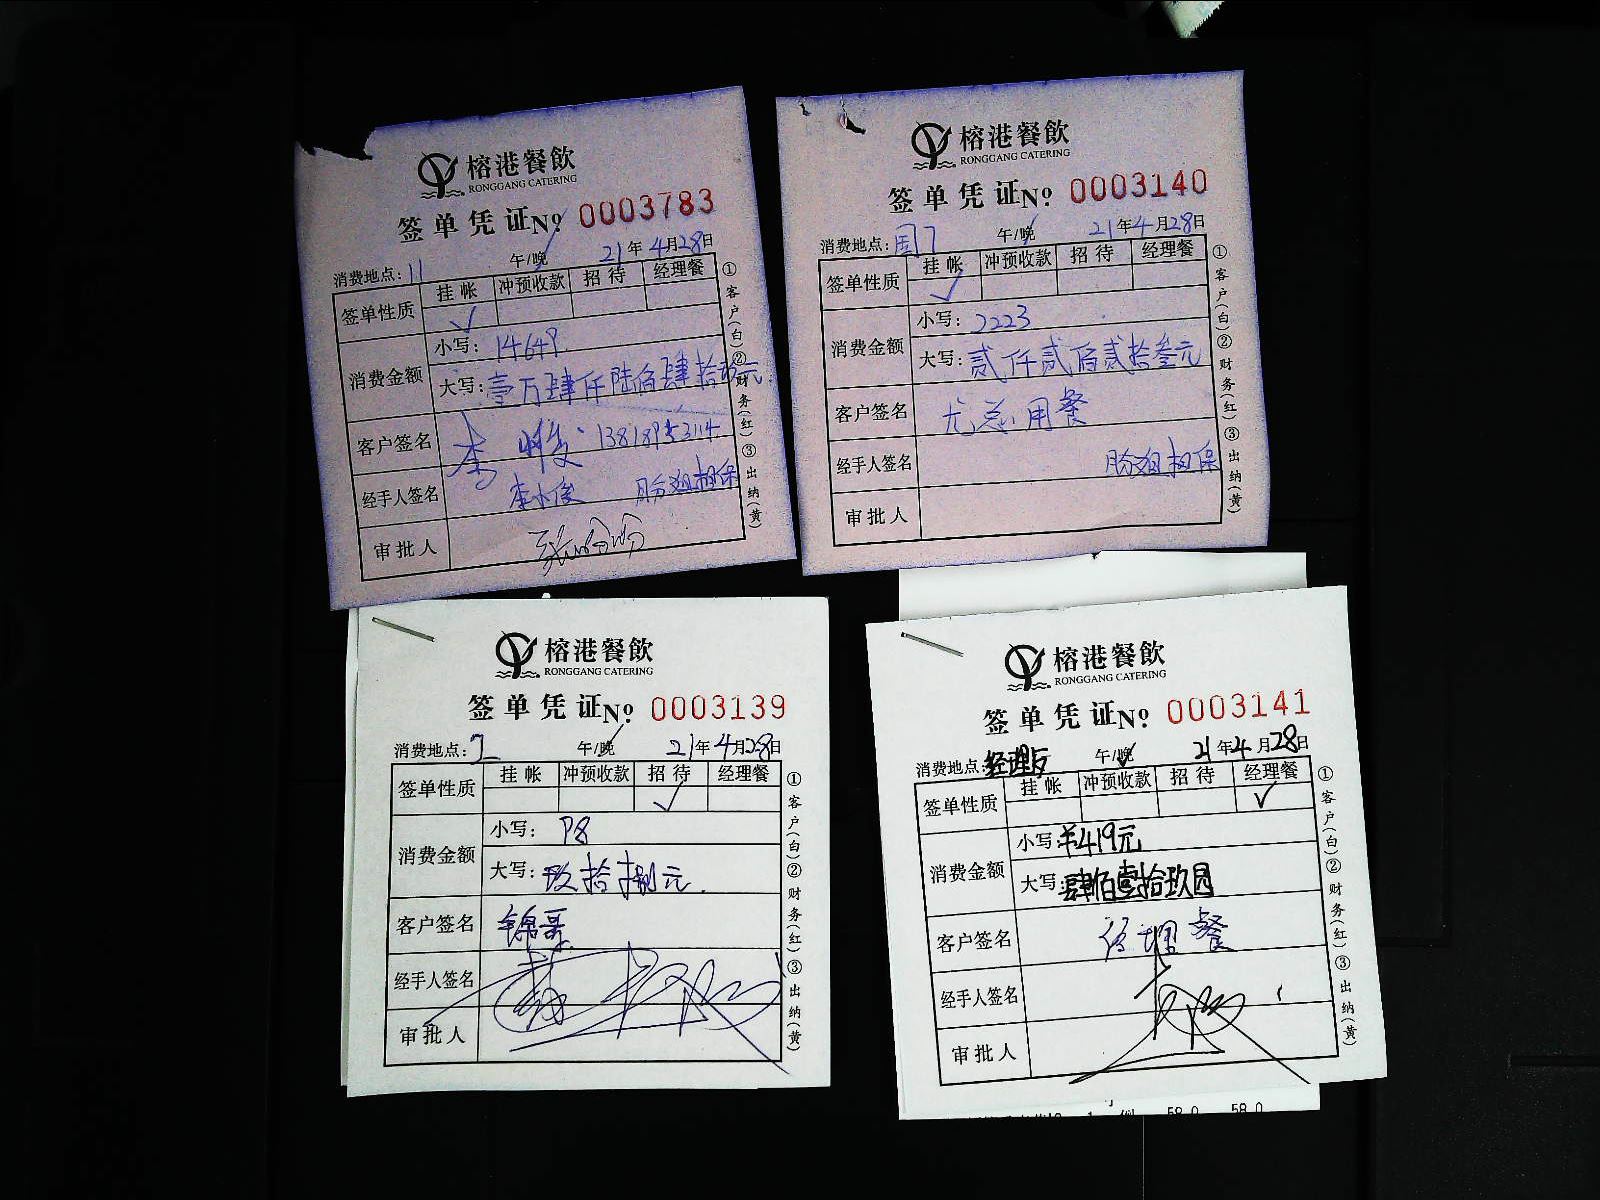 榕港餐飲
RONGGANG CATERING
签单凭证 No 0003783
消费地点: 11 午/晚 21年4月28日
签单性质 挂帐 冲预收款 招待 经理餐
✓
消费金额 小写: 14649
大写: 壹万肆仟陆佰肆拾玖元
客户签名 李
经手人签名 李小俊 盼姐担保
审批人 张盼盼
①客户(白)②财务(红)③出纳(黄)
榕港餐飲
RONGGANG CATERING
签单凭证 No 0003140
消费地点: 午/晚 21年4月28日
签单性质 挂帐 冲预收款 招待 经理餐
✓
消费金额 小写: 2223
大写: 贰仟贰佰贰拾叁元
客户签名 尤总用餐
经手人签名 盼姐担保
审批人
①客户(白)②财务(红)③出纳(黄)
榕港餐飲
RONGGANG CATERING
签单凭证 No 0003139
消费地点: 午/晚 21年4月28日
签单性质 挂帐 冲预收款 招待 经理餐
✓
消费金额 小写: 98
大写: 玖拾捌元
客户签名 锦哥
经手人签名
审批人
①客户(白)②财务(红)③出纳(黄)
榕港餐飲
RONGGANG CATERING
签单凭证 No 0003141
消费地点: 午/晚 21年4月28日
签单性质 挂帐 冲预收款 招待 经理餐
✓
消费金额 小写: ¥419元
大写: 肆佰壹拾玖圆
客户签名 经理餐
经手人签名
审批人
①客户(白)②财务(红)③出纳(黄)
58.0 58.0